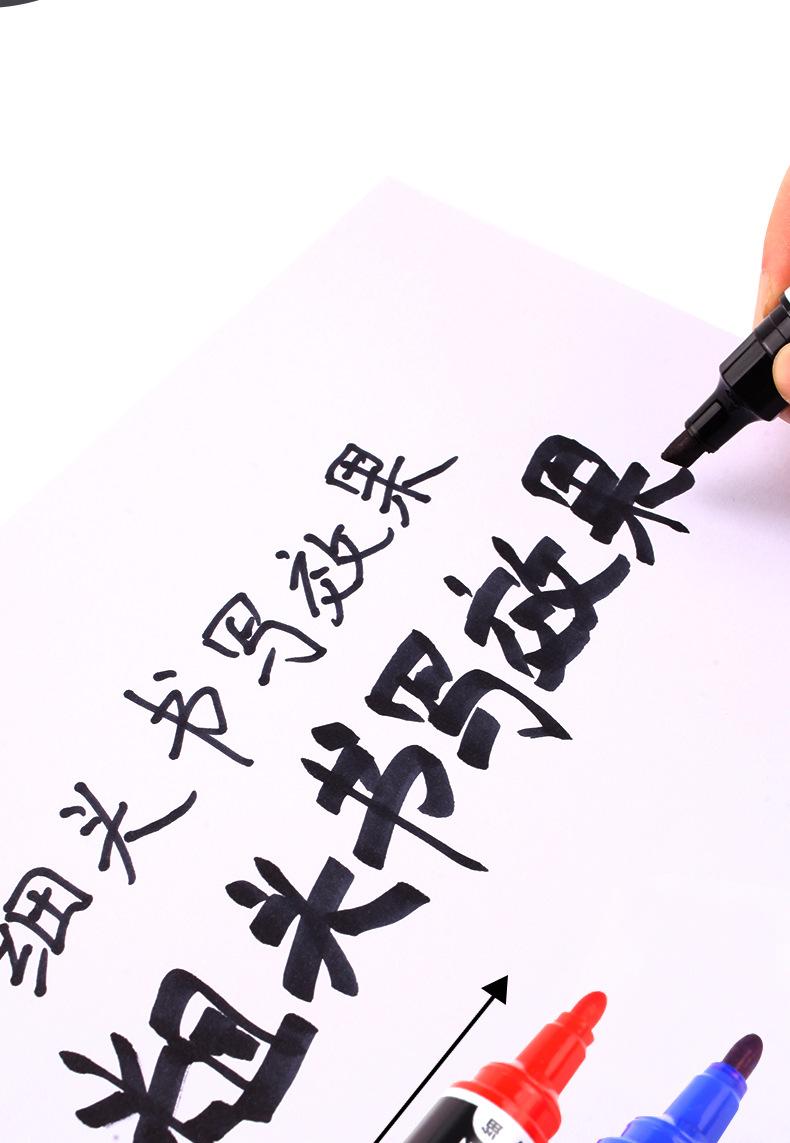 细头书写效果
粗头书写效果